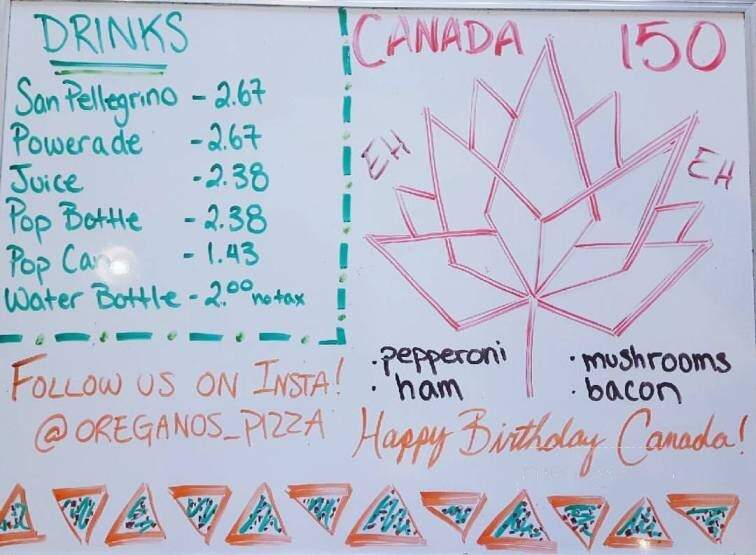 DRINKS
San Pellegrino - 2.67
Powerade - 2.67
Juice - 2.38
Pop Bottle - 2.38
Pop Can - 1.43
Water Bottle - 2.00 no tax
FOLLOW US ON INSTA!
@OREGANOS_PIZZA
CANADA 150
EH
EH
· pepperoni
· ham
· mushrooms
· bacon
Happy Birthday Canada!